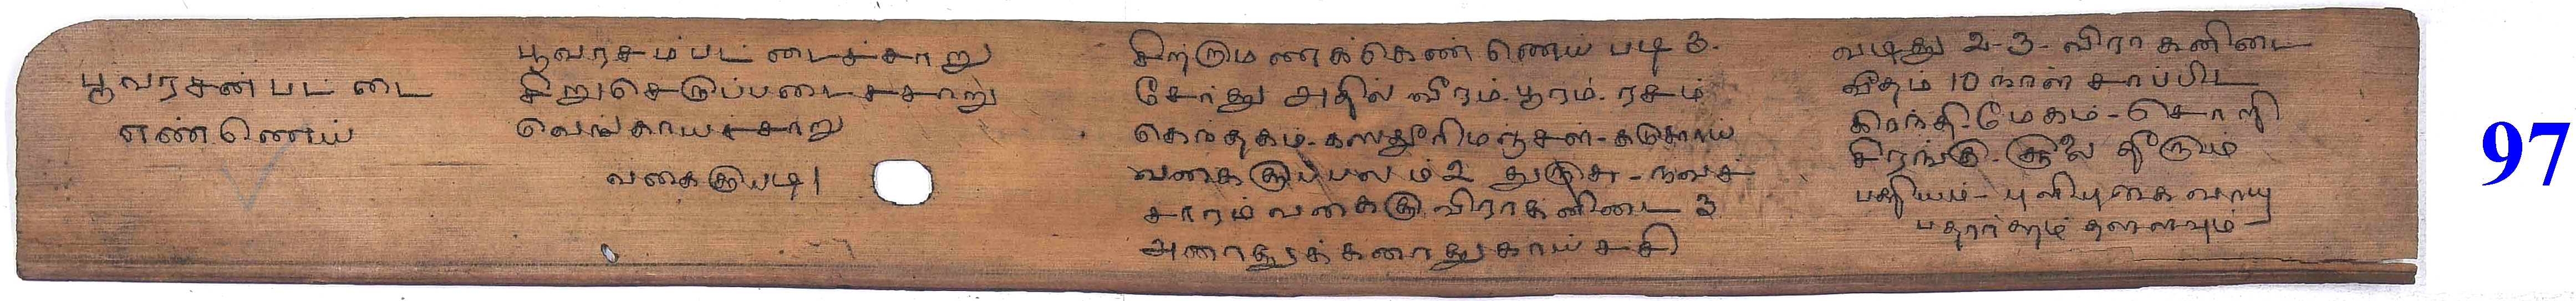 பூவரசன் பட்டை
எண்ணெய்
பூவரசம்பட்டைச்சாறு
சிறுசெடுப்படைச்சாறு
வெங்காயச்சாறு
வகைக்குபடி 1
சிற்றுமணக்கெண்ணெய் படி 3.
சேர்த்து அதில் வீரம். பூரம். ரசம்
கெந்தகம். கஸ்தூரிமஞ்சள் - கடுகாய்
வகைக்குப்பலம் 2 துருசு - நவச்
சாரம் வகைக்கு விராகனிடை 3
அரைத்துக்கலந்துகாய்ச்சி
வடித்து 2-3- விராகனிடை
வீதம் 10 நாள் சாப்பிட
கிரந்தி - மேகம் - சொறி
சிரங்கு. சூலை தீரும்
பத்தியம் - புளிபுகை வாயு
பதார்த்தம் தள்ளவும்
97